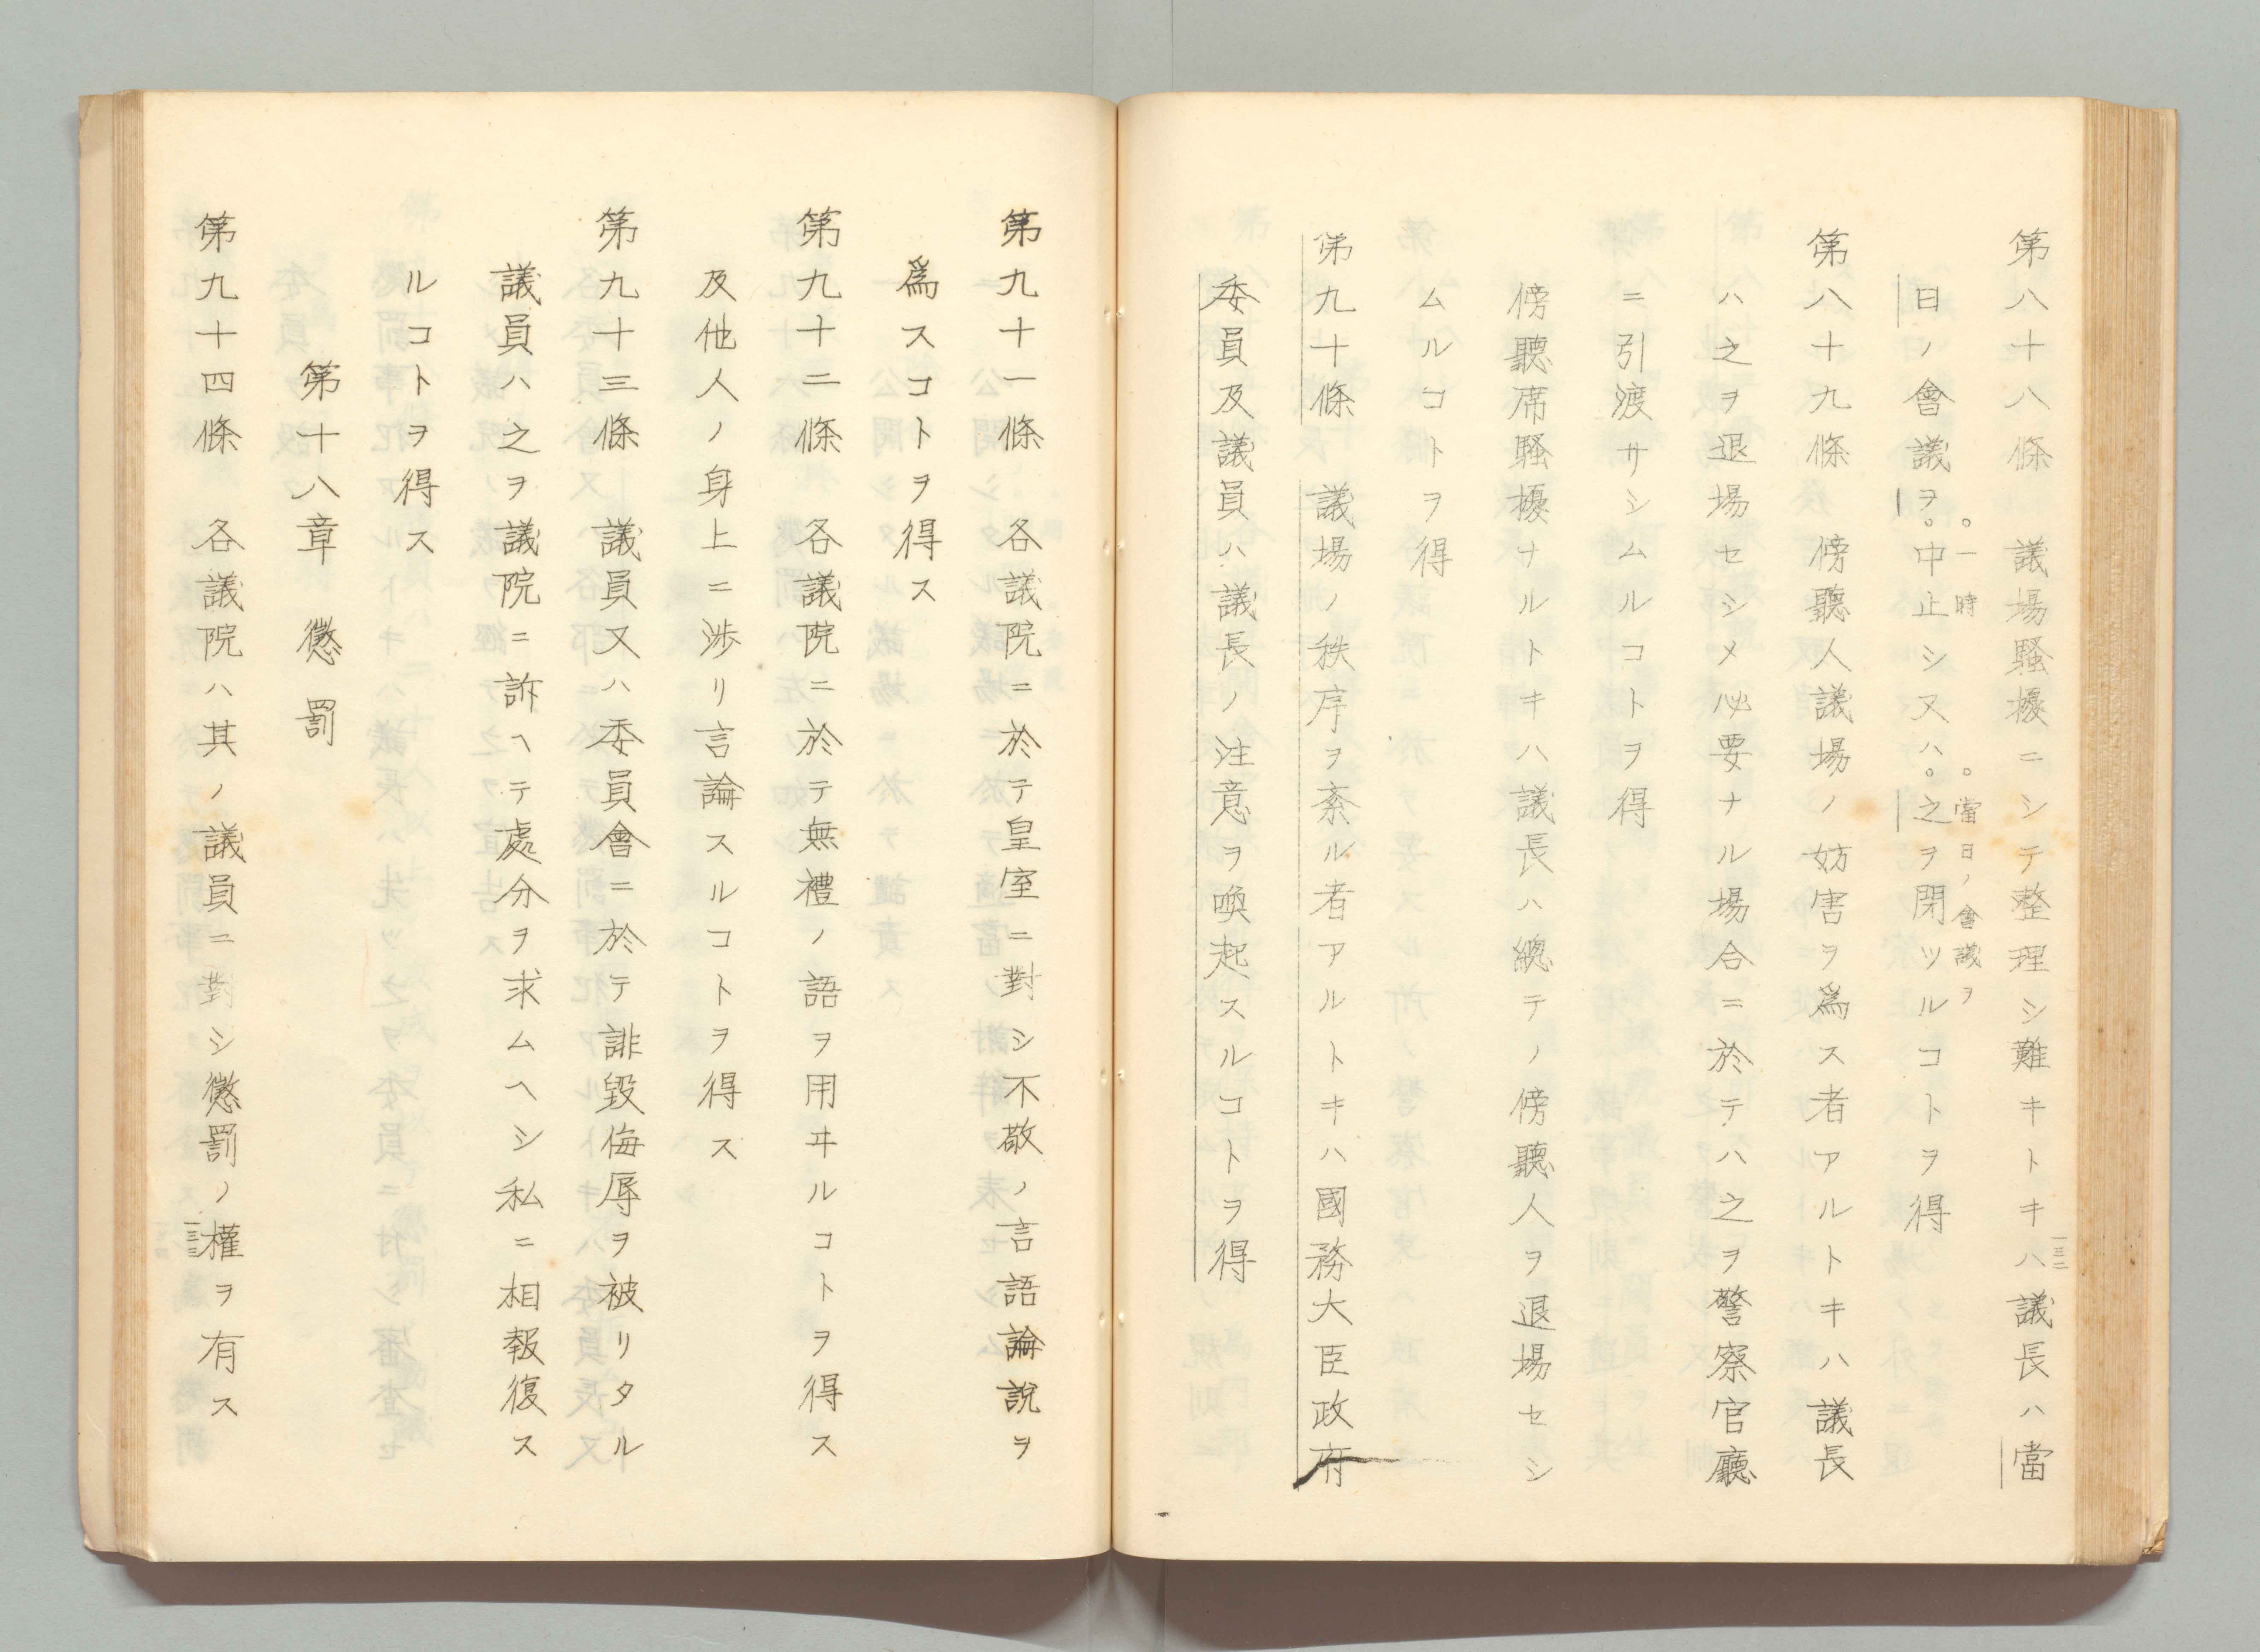 第八十八條　議場騷擾ニシテ整理シ難キトキハ議長ハ當
一三二
。一時　。當日ノ會議ヲ
日ノ會議ヲ。中止シ又ハ。之ヲ閉ツルコトヲ得
第八十九條　傍聽人議場ノ妨害ヲ爲ス者アルトキハ議長
ハ之ヲ退場セシメ必要ナル場合ニ於テハ之ヲ警察官廳
ニ引渡サシムルコトヲ得
傍聽席騷擾ナルトキハ議長ハ總テノ傍聽人ヲ退場セシ
ムルコトヲ得
第九十條　議場ノ秩序ヲ紊ル者アルトキハ國務大臣政府
委員及議員ハ議長ノ注意ヲ喚起スルコトヲ得
第九十一條　各議院ニ於テ皇室ニ對シ不敬ノ言語論說ヲ
爲スコトヲ得ス
第九十二條　各議院ニ於テ無禮ノ語ヲ用ヰルコトヲ得ス
及他人ノ身上ニ涉リ言論スルコトヲ得ス
第九十三條　議員又ハ委員會ニ於テ誹毀侮辱ヲ被リタル
議員ハ之ヲ議院ニ訴ヘテ處分ヲ求ムヘシ私ニ相報復ス
ルコトヲ得ス
第十八章　懲罰
第九十四條　各議院ハ其ノ議員ニ對シ懲罰ノ權ヲ有ス
一三三